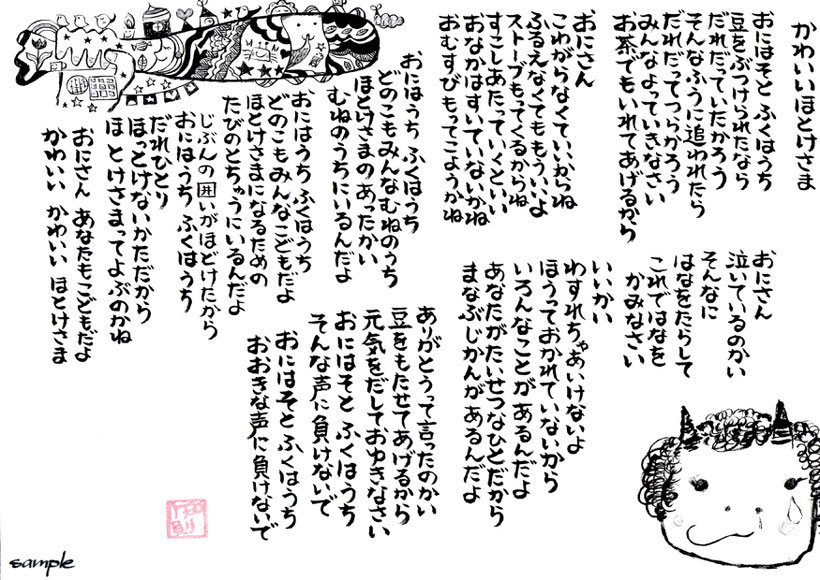 かわいいほとけさま
おにはそと ふくはうち
豆をぶつけられたなら
だれだっていたかろう
そんなふうに追われたら
だれだってつらかろう
みんなよっていきなさい
お茶でもいれてあげるから
おにさん
こわがらなくていいからね
ふるえなくてももういいよ
ストーブもってくるからね
すこしあたっていくといい
おなかはすいていないかね
おむすびもってこようかね
おにさん
泣いているのかい
そんなに
はなをたらして
これではなを
かみなさい
いいかい
わすれちゃあいけないよ
ほうっておかれていないから
いろんなことがあるんだよ
あなたがたいせつなひとだから
まなぶじかんがあるんだよ
ありがとうって言ったのかい
豆をもたせてあげるから
元気をだしておゆきなさい
おにはそと ふくはうち
そんな声に負けないで
おにはそと ふくはうち
おおきな声に負けないで
おにはうち ふくはうち
どのこもみんなむねのうち
ほとけさまのあったかい
むねのうちにいるんだよ
おにはうち ふくはうち
どのこもみんなこどもだよ
ほとけさまになるための
たびのとちゅうにいるんだよ
じぶんの囲いがほどけたから
おにはうち ふくはうち
だれひとり
ほっとけないかただから
ほとけさまってよぶのかね
おにさん あなたもこどもだよ
かわいい かわいい ほとけさま
sample